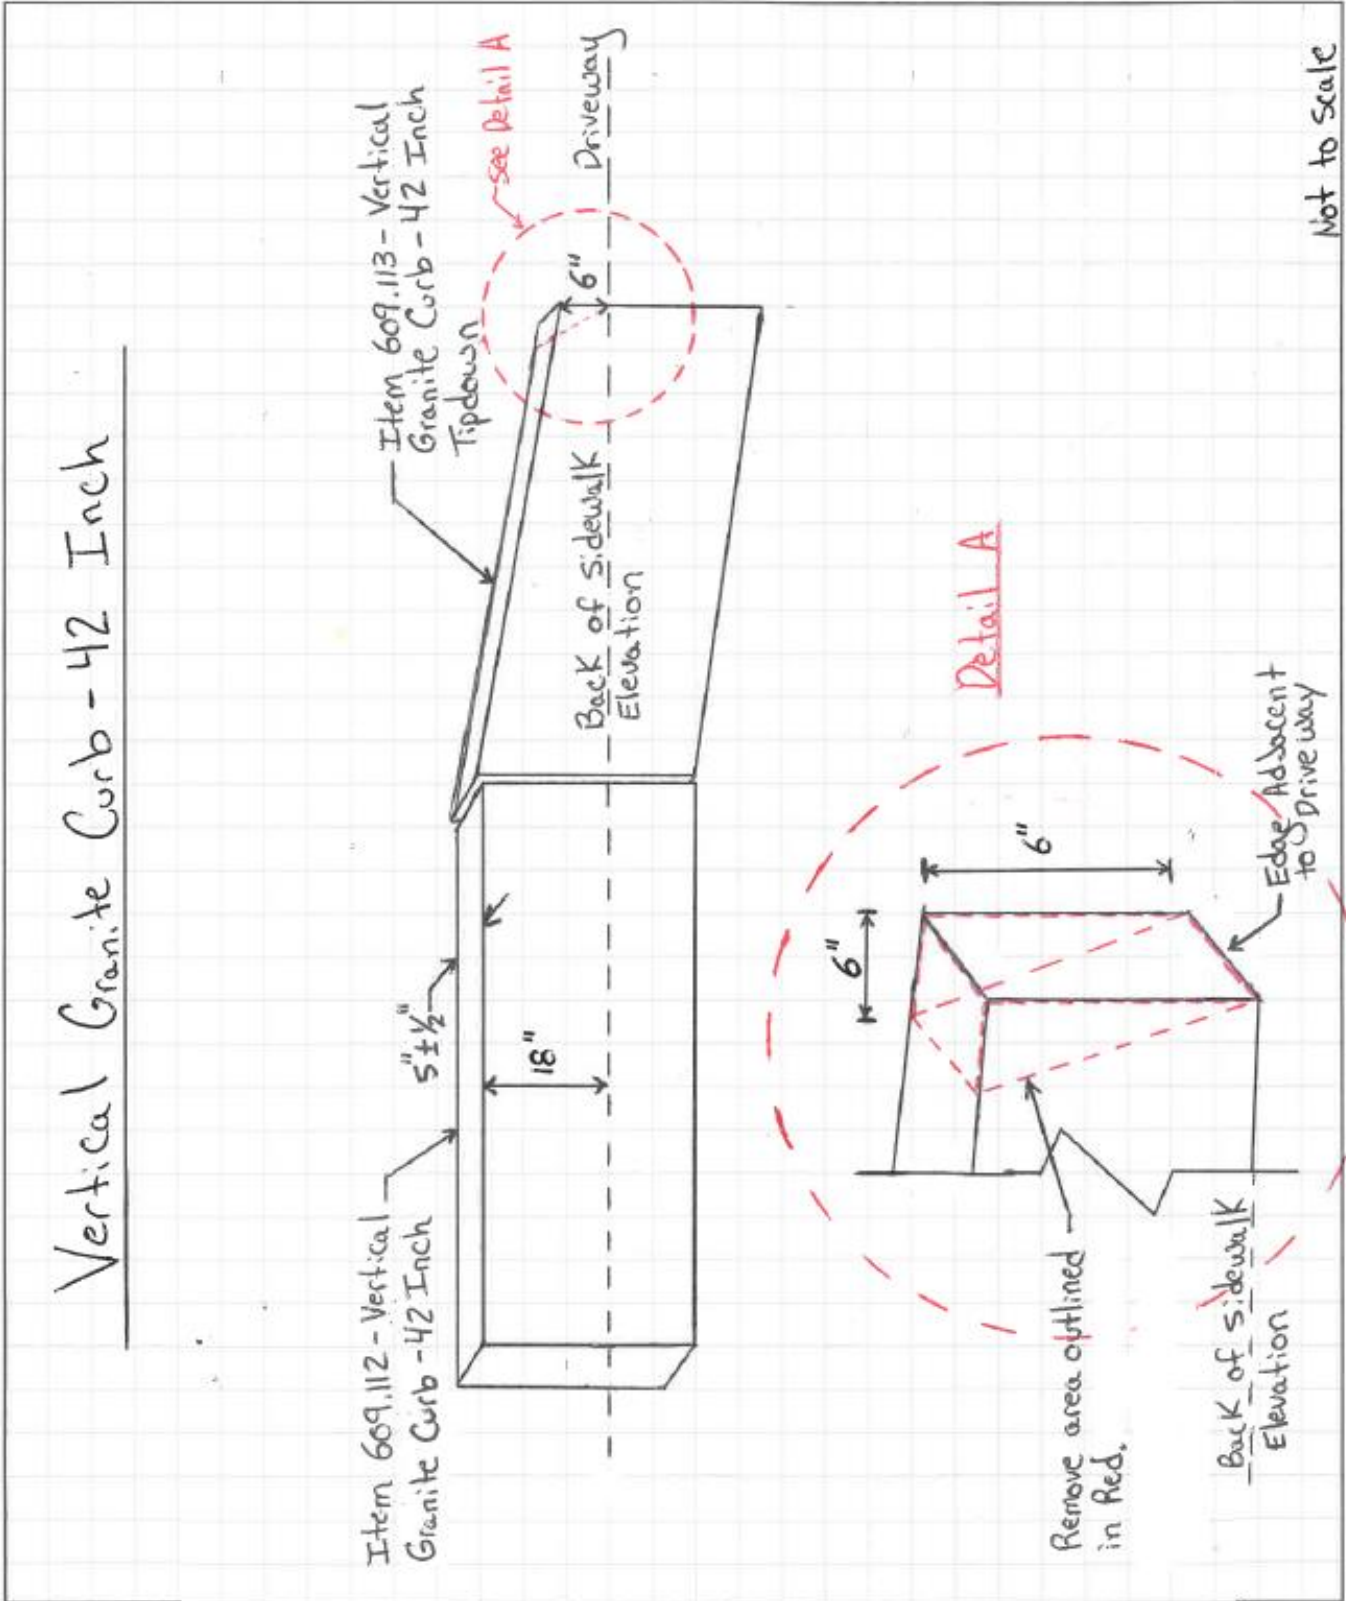 Vertical Granite Curb - 42 Inch
Item 609.112 - Vertical
Granite Curb - 42 Inch
5" ± ½"
18"
Item 609.113 - Vertical
Granite Curb - 42 Inch
Tipdown
see Detail A
6"
Driveway
Back of sidewalk
Elevation
Detail A
6"
6"
Edge Adjacent
to Driveway
Remove area outlined
in Red.
Back of sidewalk
Elevation
Not to scale